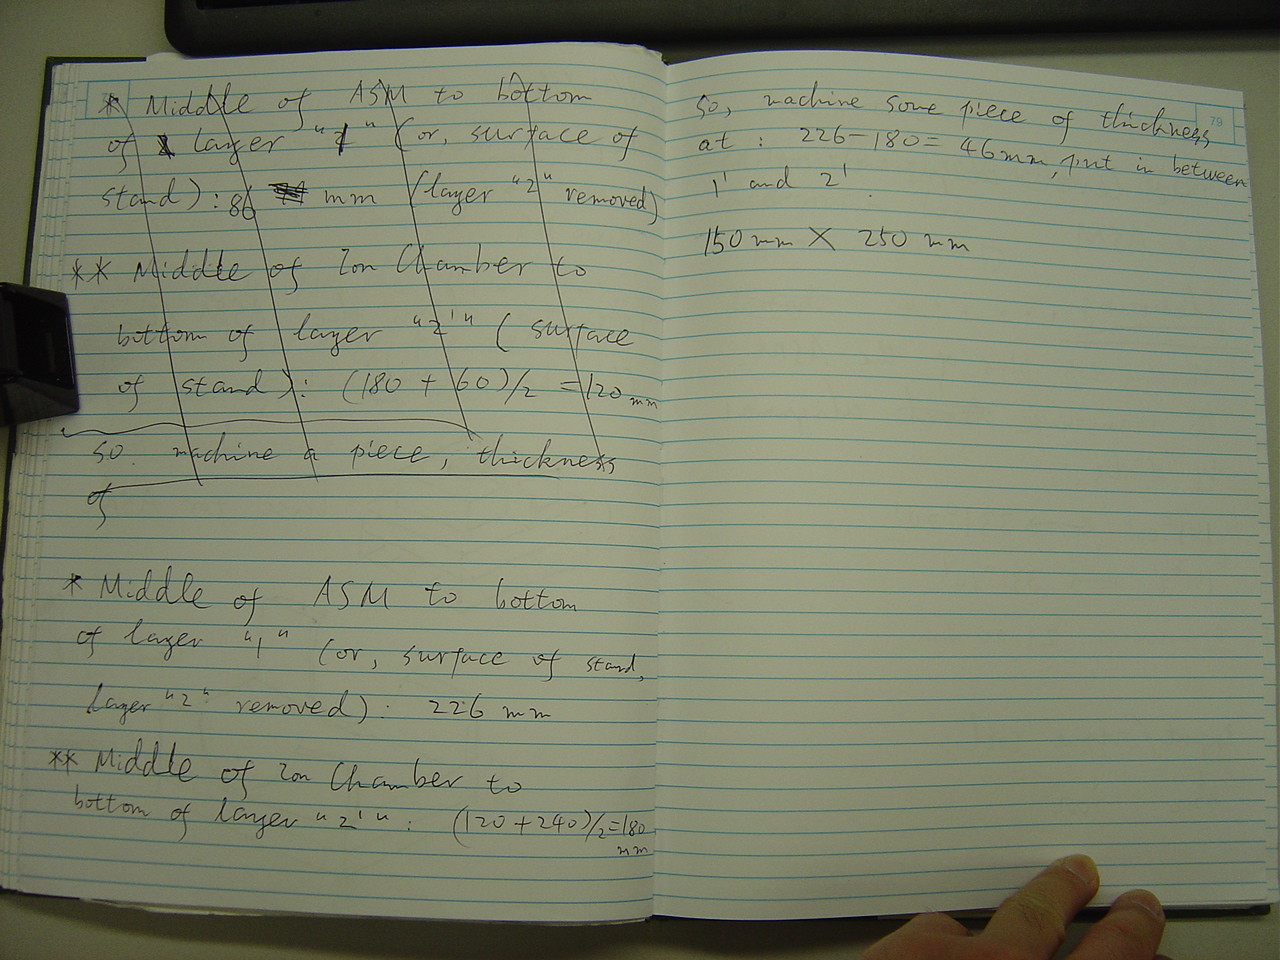 * Middle of ASM to bottom
of layer "1" (or, surface of
stand) : 86 mm (layer "2" removed)
** Middle of Ion Chamber to
bottom of layer "2'" (surface
of stand) : (180 + 60)/2 = 120 mm
so. machine a piece, thickness
of
* Middle of ASM to bottom
of layer "1" (or, surface of stand,
layer "2" removed) : 226 mm
** Middle of Ion Chamber to
bottom of layer "2'" : (120+240)/2=180
mm
79
so, machine some piece of thickness
at : 226-180= 46mm, put in between
1' and 2'.
150 mm X 250 mm